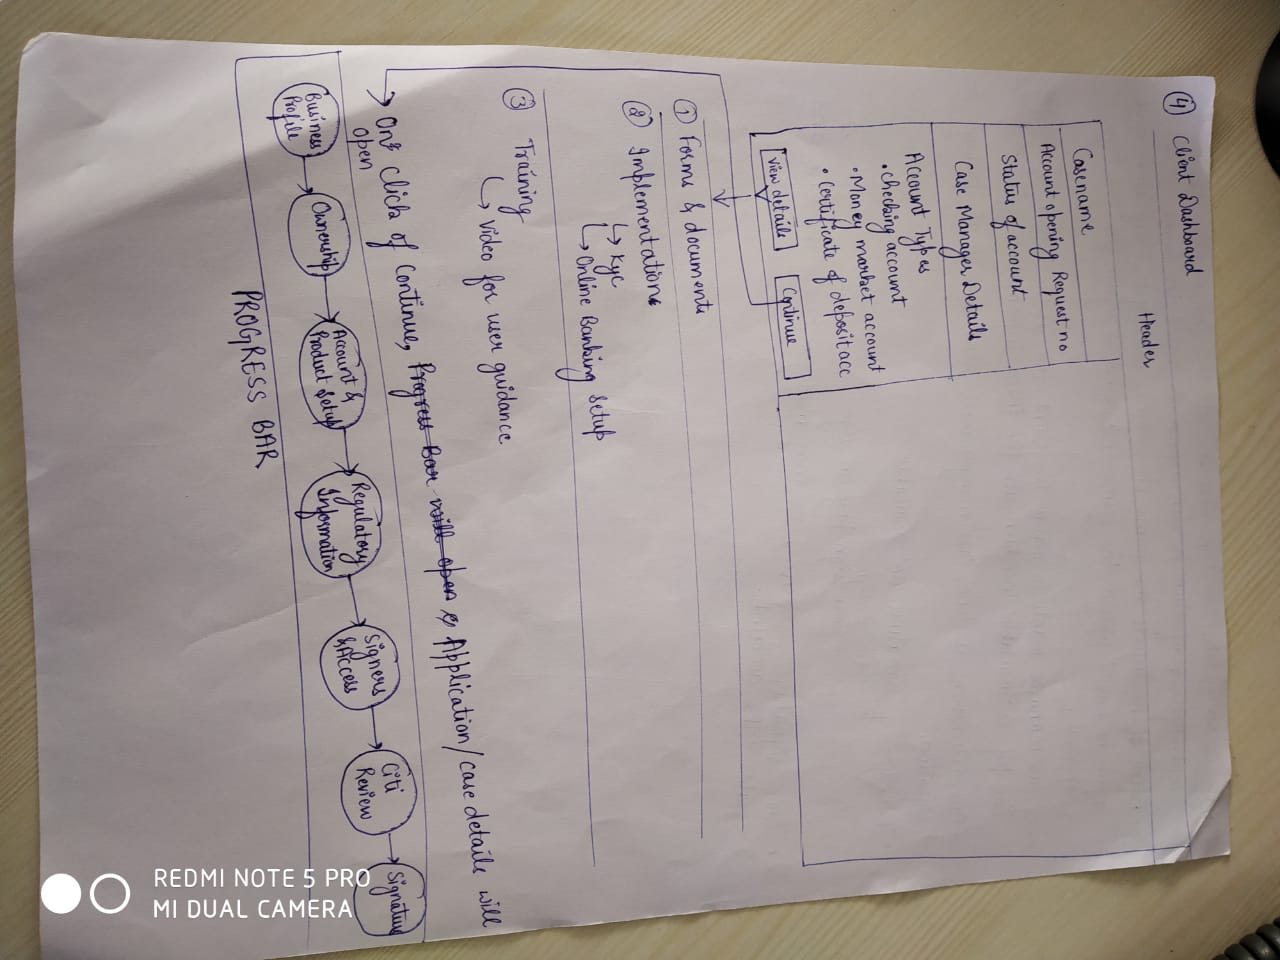 ④ Client Dashboard
Header
Casename
Account opening Request no
Status of account
Case Managers Details
Account Types
• checking account
• Money market account
• certificate of deposit acc
View details
Continue
① Forms & documents
② Implementations
↳ Kyc
↳ Online Banking Setup
③ Training
↳ Video for user guidance
→ On click of Continue, Progress Bar will open Application/case details will
open
Business
Profile
Ownership
Account &
Product Setup
Regulatory
Information
Signers
& Access
Citi
Review
Signature
PROGRESS BAR
REDMI NOTE 5 PRO
MI DUAL CAMERA